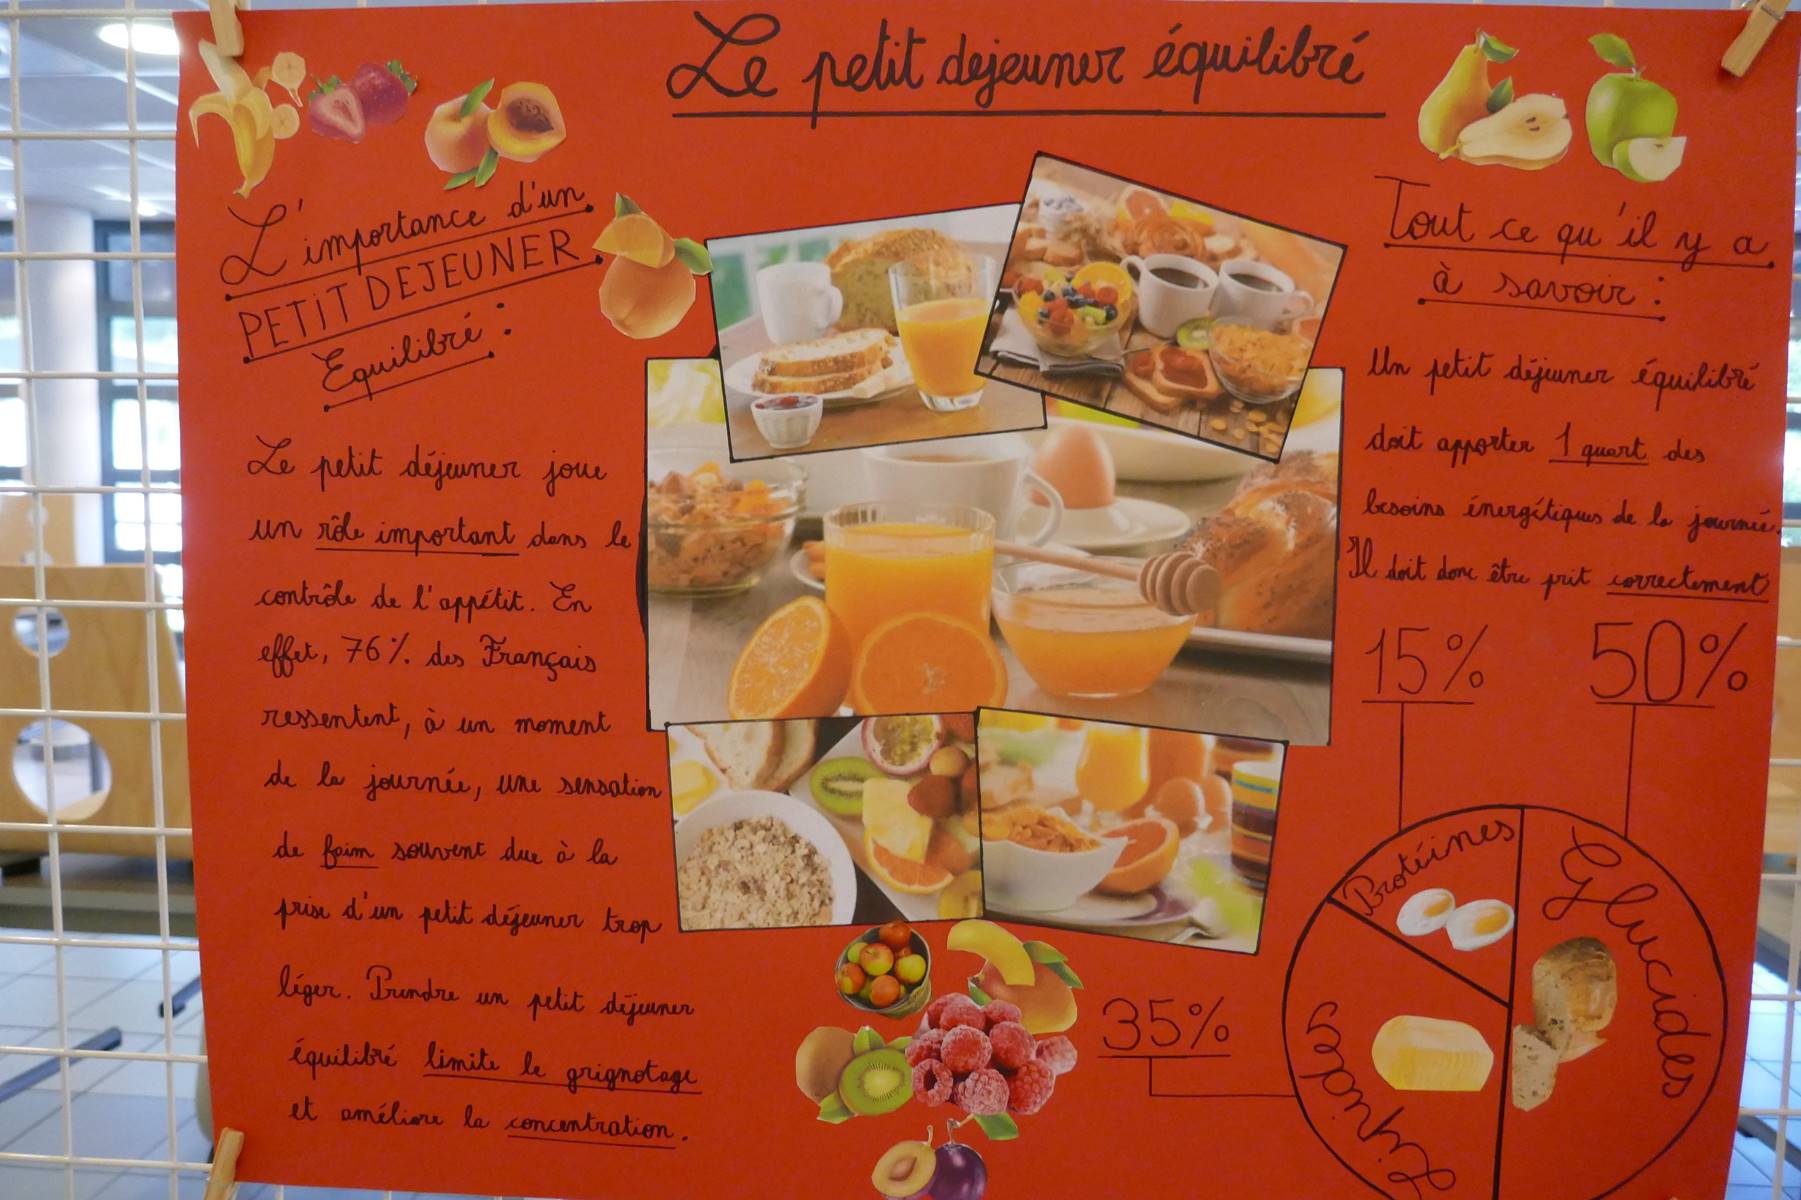 Le petit dejeuner équilibré
L'importance d'un
PETIT DEJEUNER
Equilibré :
Le petit déjeuner joue
un rôle important dans le
contrôle de l'appétit. En
effet, 76% des Français
ressentent, à un moment
de la journée, une sensation
de faim souvent due à la
prise d'un petit déjeuner trop
léger. Prendre un petit déjeuner
équilibré limite le grignotage
et améliore la concentration.
Tout ce qu'il y a
à savoir :
Un petit déjeuner équilibré
doit apporter 1 quart des
besoins énergétiques de la journée.
Il doit donc être prit correctement
15%
50%
Protéines
Glucides
35%
Lipides